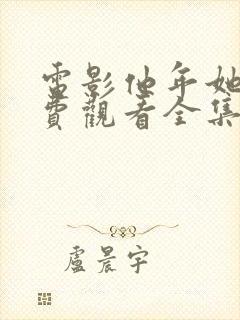 電影他年她
費觀看全集
盧晨宇